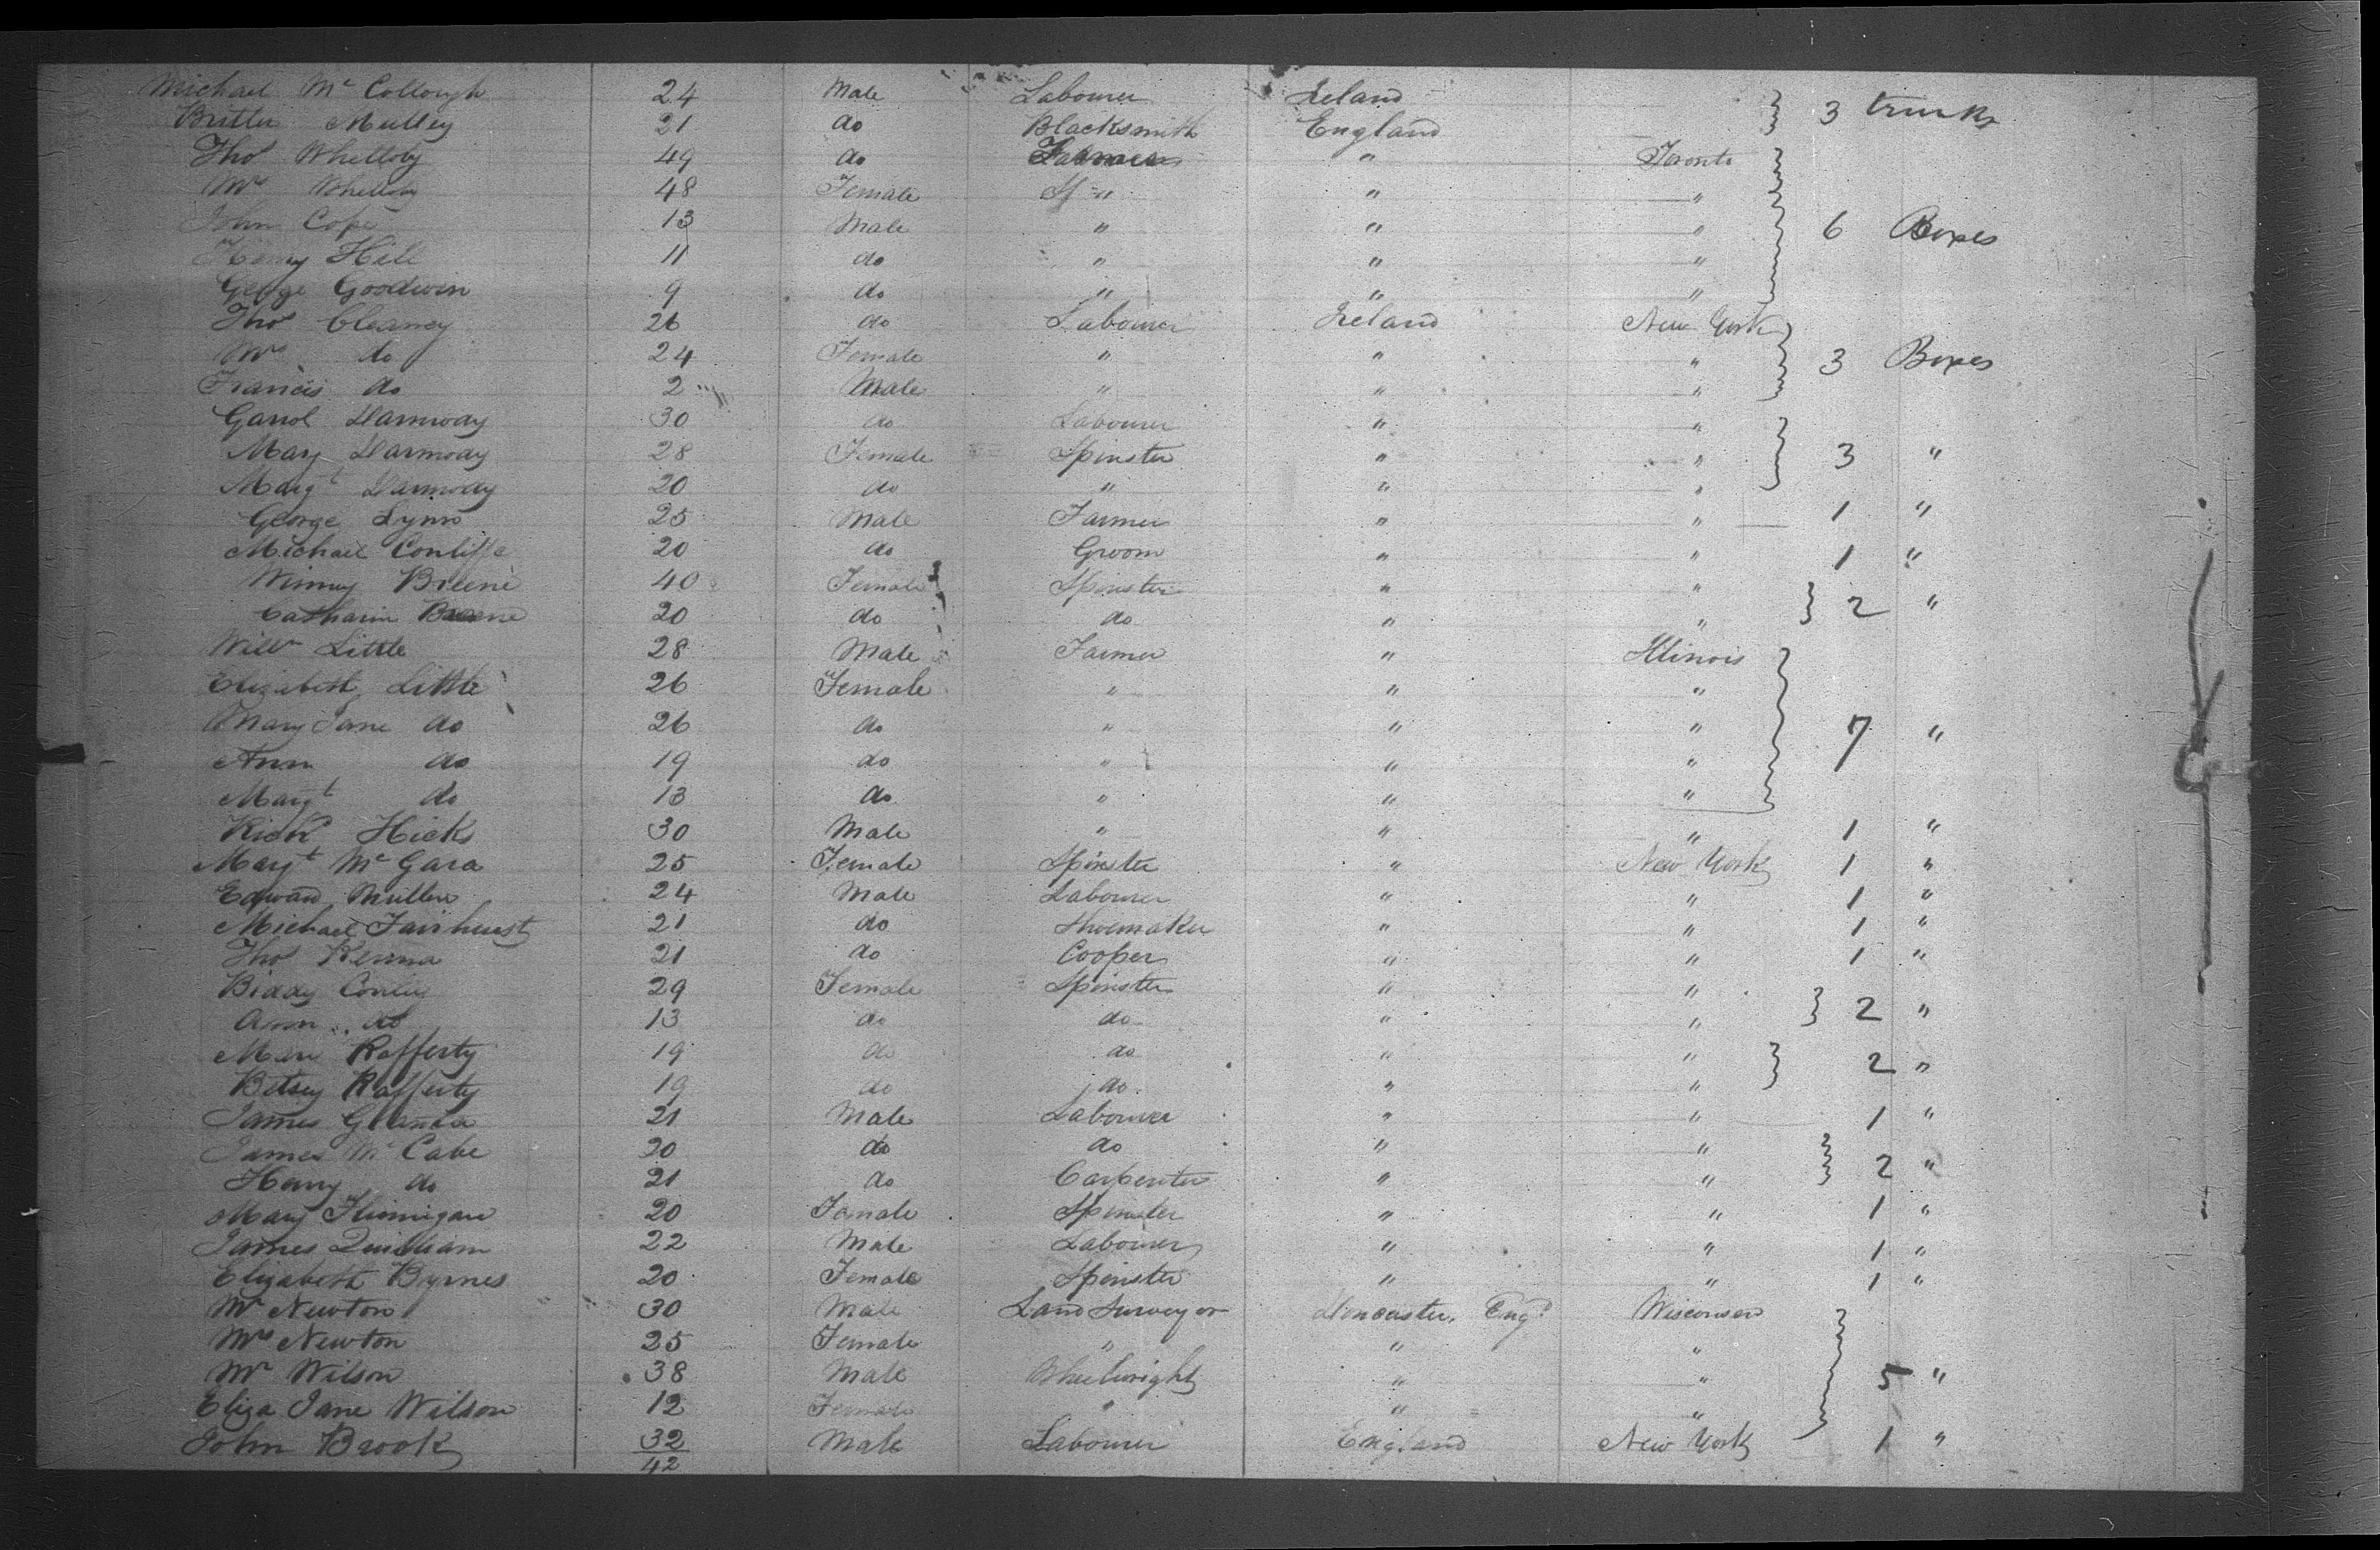 Michael Mc Collough 24 Male Labourer Ireland
Mulley 21 do Blacksmith England } 3 trunks
Thos Whelloby 49 do Farmer " Toronto
Mrs Whelloby 48 Female " " "
John Cope 13 Male " " "
Henry Hill 11 do " " " } 6 Boxes
George Goodwin 9 do " " "
Thos Cleaney 26 do Labourer Ireland New York
Mrs do 24 Female " " " } 3 Boxes
Francis do 2 Male " " "
Garrol Darmody 30 do Labourer " "
Mary Darmody 28 Female Spinster " " } 3 "
Margt Darmody 20 do " " "
George Lynn 25 Male Farmer " " 1 "
Michael Conliffe 20 do Groom " " 1 "
Winney Breene 40 Female Spinster " "
Catharin Breene 20 do do " " } 2 "
Willm Little 28 Male Farmer " Illinois
Elizabeth Little 26 Female " " "
Mary Jane do 26 do " " " } 7 "
Ann do 19 do " " "
Margt do 13 do " " "
Richd Hicks 30 Male " " " 1 "
Margt Mc Gara 25 Female Spinster " New York 1 "
Edward Mullen 24 Male Labourer " " 1 "
Michael Fairhurst 21 do Shoemaker " " 1 "
Thos Kenna 21 do Cooper " " 1 "
Biddy Conley 29 Female Spinster " "
Ann do 13 do do " " } 2 "
Mary Rafferty 19 do do " "
Betsey Rafferty 19 do do " " } 2 "
James 21 Male Labourer " " 1 "
James Mc Cabe 20 do do " "
Henry do 21 do Carpenter " " } 2 "
Mary Flinnigan 20 Female Spinster " " 1 "
James 22 Male Labourer " " 1 "
Elizabeth Byrnes 20 Female Spinster " " 1 "
Mr Newton 30 Male Land Surveyor Doncaster, Engd Wisconsen
Mrs Newton 25 Female " " "
Mr Wilson 38 Male Wheelwright " " } 5 "
Eliza Jane Wilson 12 Female " " "
John Brook 32 Male Labourer England New York 1 "
42